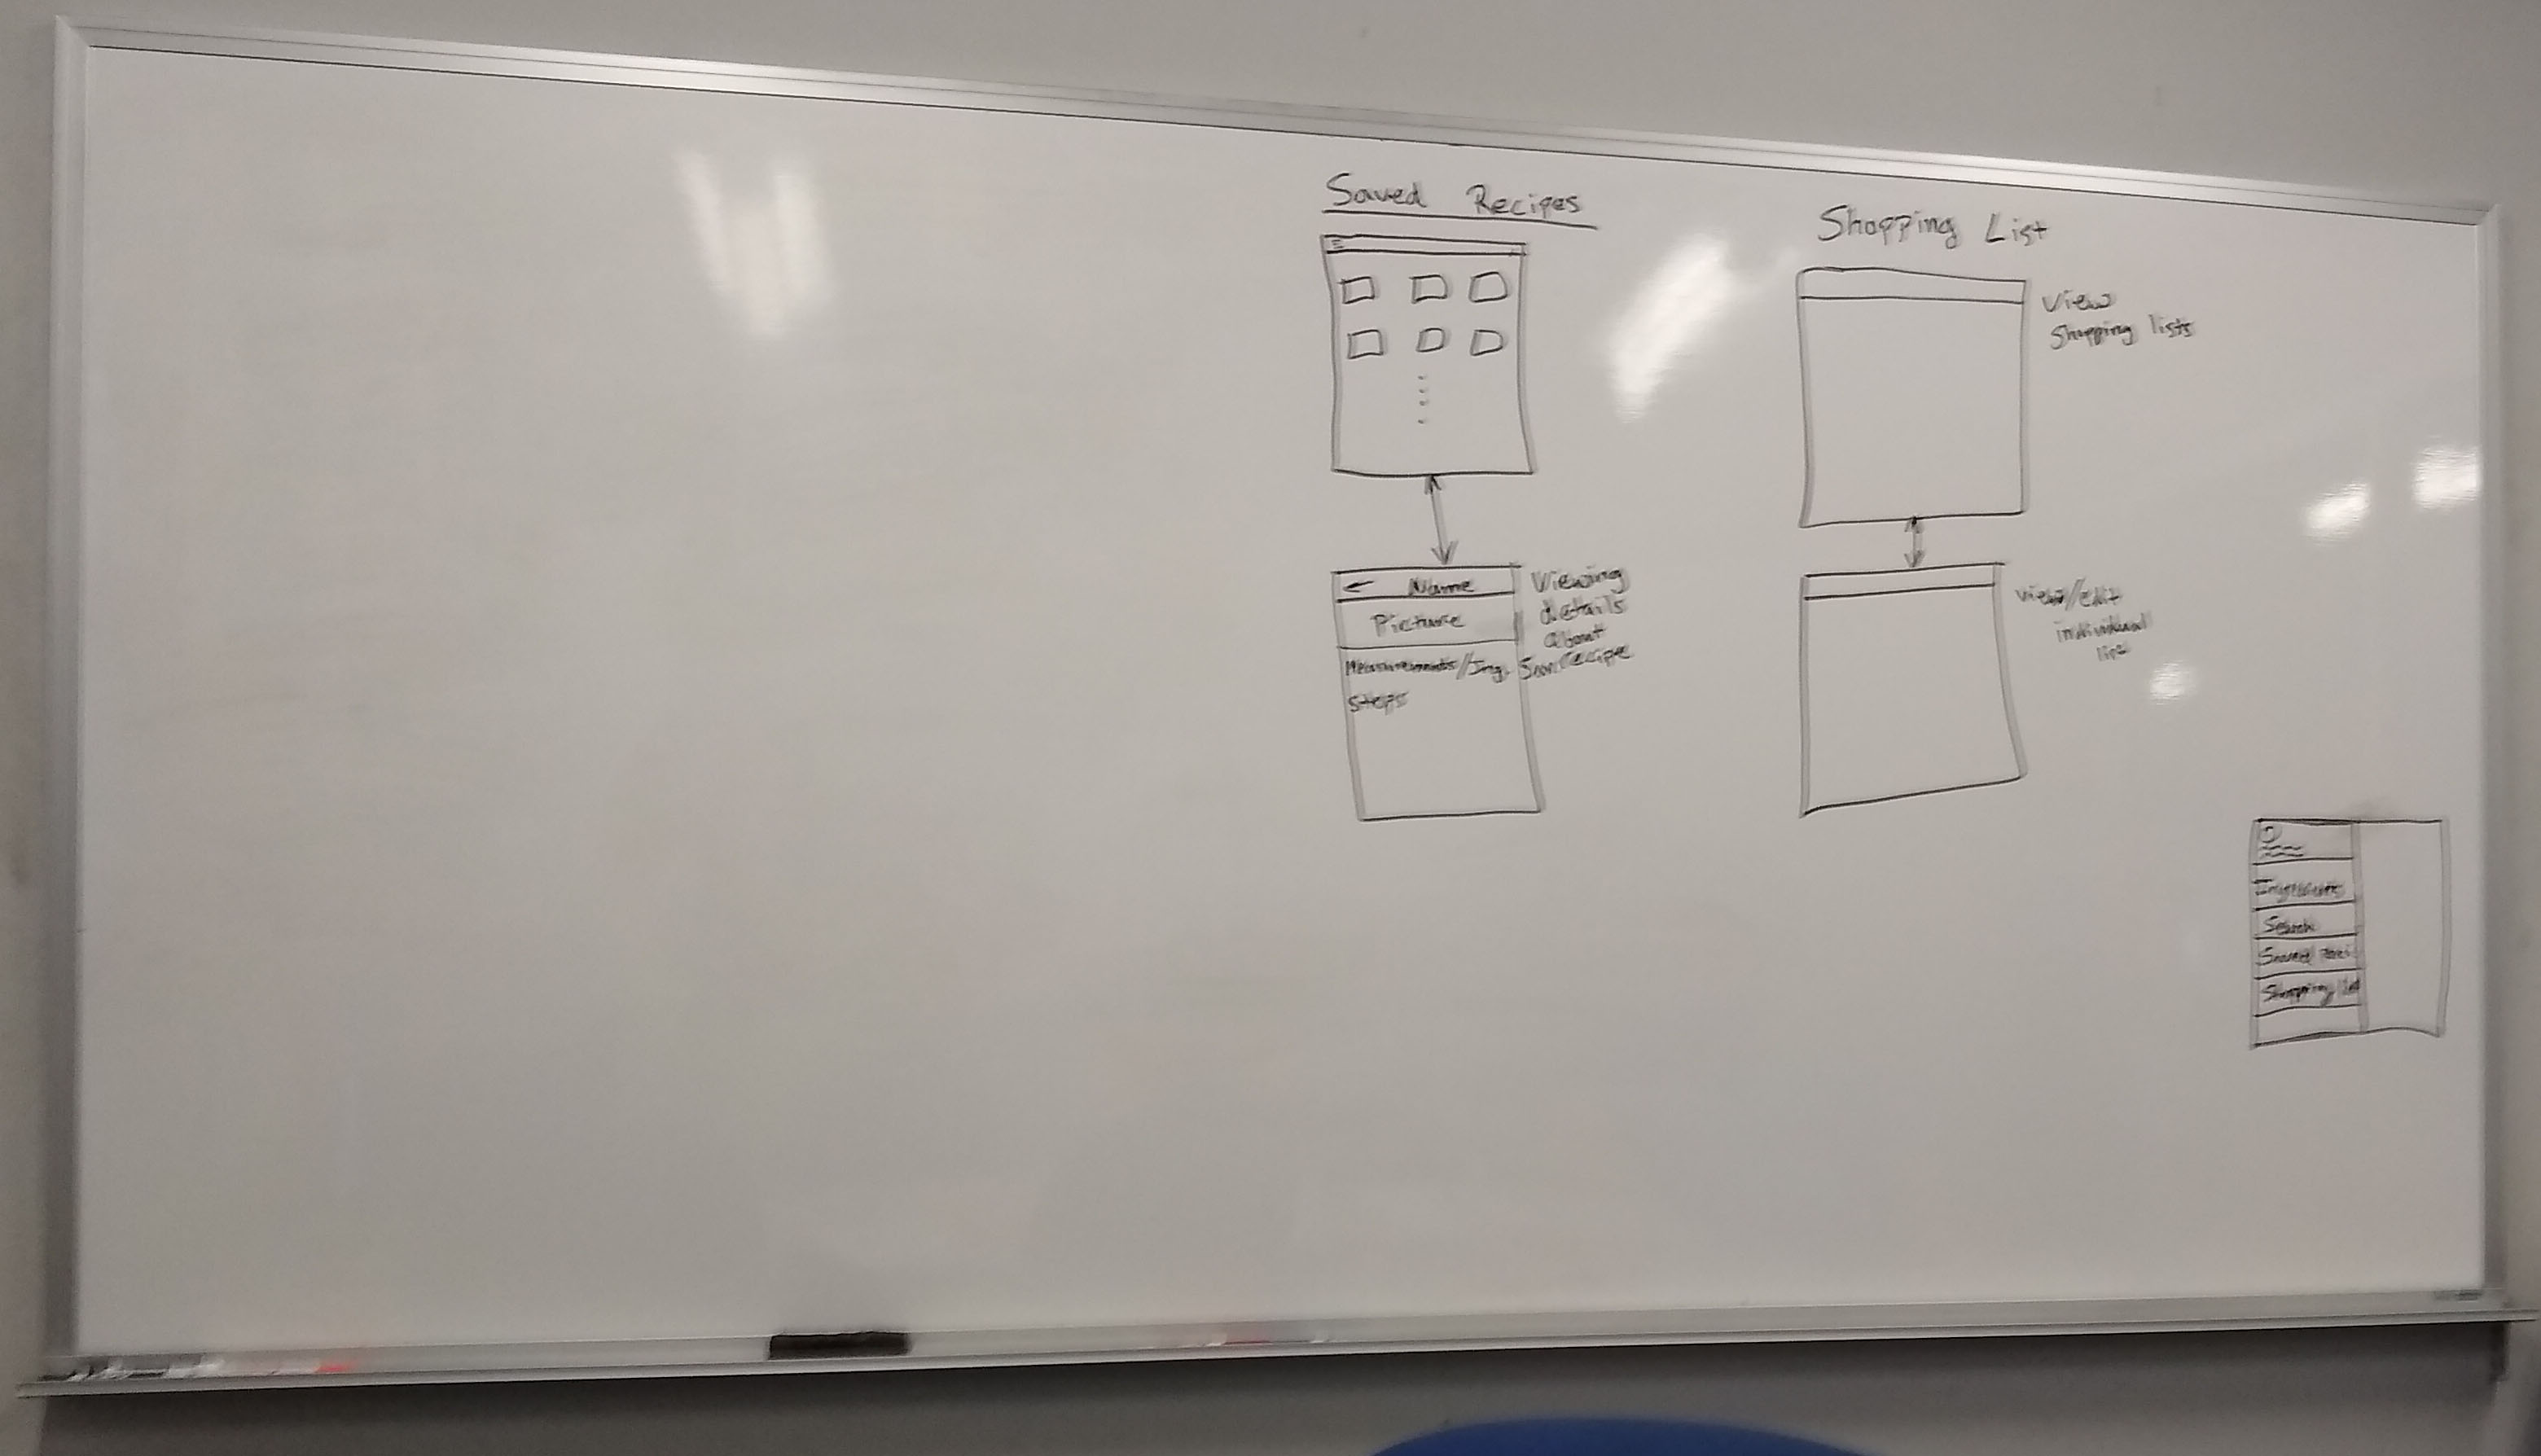 Saved Recipes
Name
Picture
Measurements/Ing.
Steps
Viewing
details
about
recipe
Shopping List
View
Shopping lists
view/edit
individual
Ingredients
Search
Saved
Shopping list